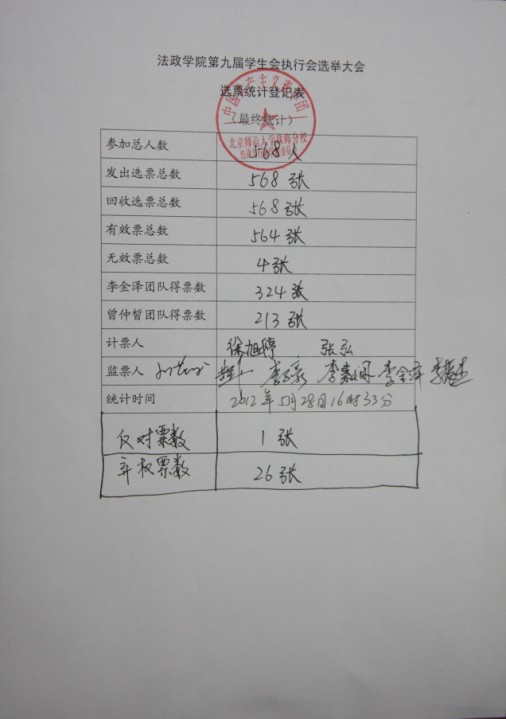 法政学院第九届学生会执行会选举大会
选票统计登记表
（最终统计）
中国共产主义青年团
北京师范大学珠海分校
参加总人数 568人
发出选票总数 568张
回收选票总数 568张
有效票总数 564张
无效票总数 4张
李金泽团队得票数 324张
曾仲皙团队得票数 213张
计票人 徐旭婷 张弘
监票人 李金泽
统计时间 2012年5月28日16时33分
反对票数 1张
弃权票数 26张